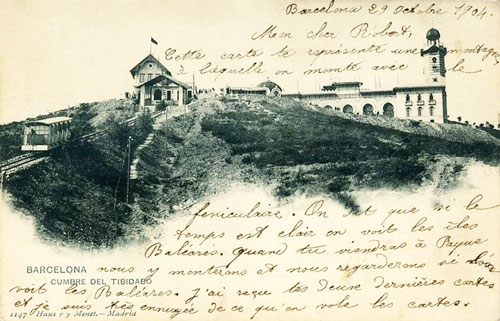 Barcelona 29 Octobre 1904.
Mon cher Robert,
Cette carte te représente une montagne
à laquelle on monte avec le
feniculaire. On dit que si le
temps est clair on voit les îles
Baléares. Quand tu viendras à Paque
BARCELONA
nous y monterons et nous regarderons si on
CUMBRE DEL TIBIDABO
voit les Baléares. J'ai reçu tes deux dernières cartes
et je suis très ennuyée de ce qu'on vole les cartes.
1147 Hauser y Menet.-Madrid